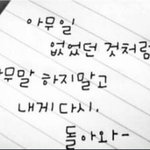 아무일
없었던 것처럼
무말 하지말고
내게 다시.
돌아와-